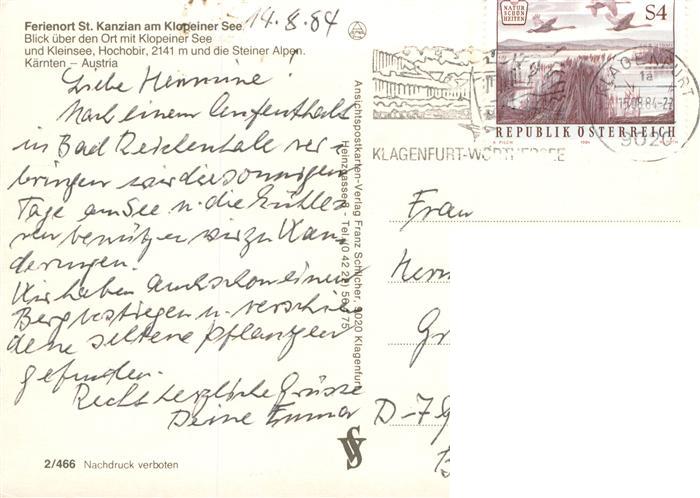 14.8.84
Ferienort St. Kanzian am Klopeiner See.
Blick über den Ort mit Klopeiner See
und Kleinsee, Hochobir, 2141 m und die Steiner Alpen.
Kärnten – Austria
Liebe Hermine!
Nach einem Aufenthalt
in Bad Reichenhall ver-
bringen wir die sonnigen
Tage am See u. die kühle-
ren benützen wir zu Wan-
derungen.
Wir haben auch schon einen
Berg bestiegen u. verschie-
dene seltene Pflanzen
gefunden.
Recht herzliche Grüsse
Deine Emma
2/466 Nachdruck verboten
Ansichtspostkarten-Verlag Franz Schilcher, 9020 Klagenfurt
Heinzgasse 8 - Tel. (0 42 22)
NATUR
SCHÖN
HEITEN
S4
REPUBLIK ÖSTERREICH
KLAGENFURT-WÖRTHERSEE
KLAGENFURT
1a
15.08.84-22
9020
Frau
Herm
Gr
D-79